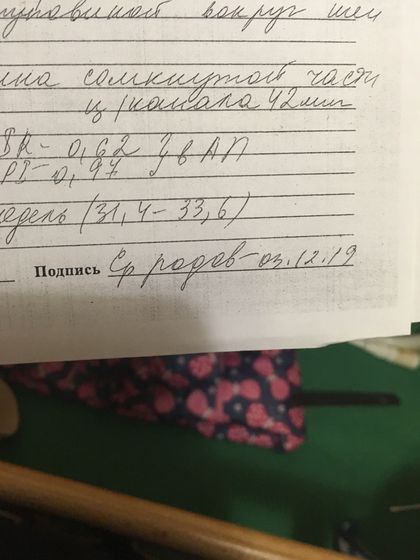 пуповиной вокруг шеи
ина сомкнутой части
ц/канала 42мм
ІR - 0,62 } в АП
PI - 0,97
недель (31,4-33,6)
Подпись Ср родов - 03.12.19